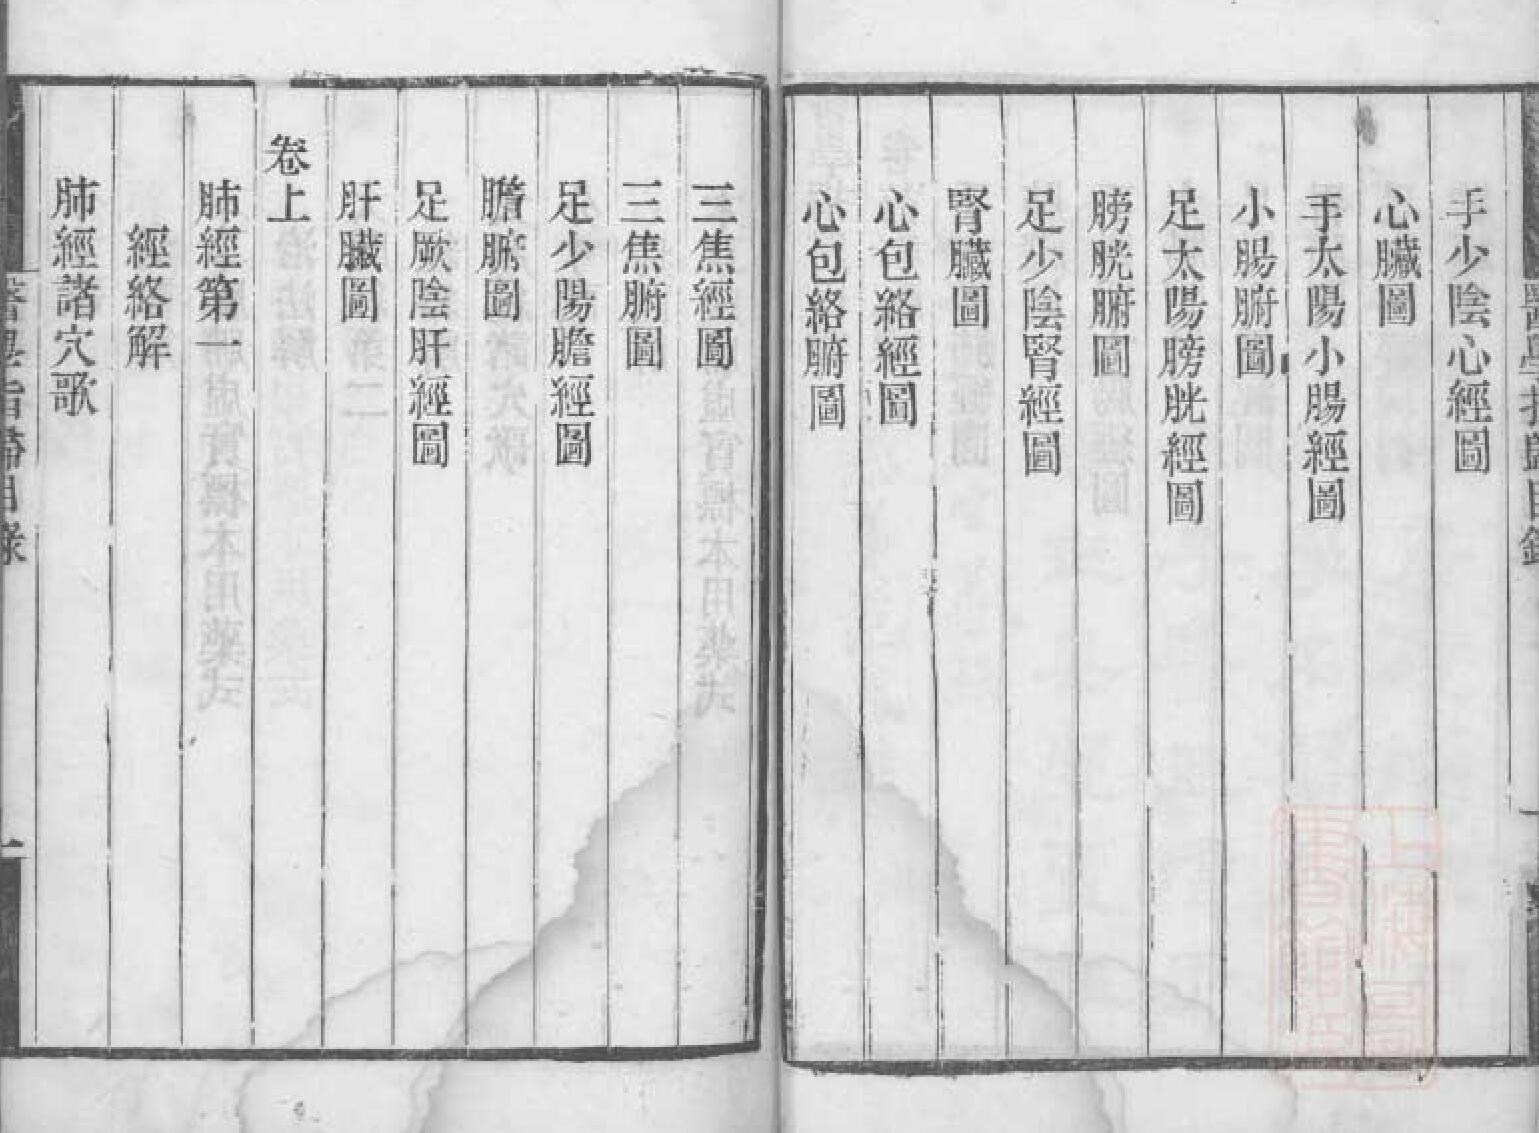 手少陰心經圖
心臟圖
手太陽小腸經圖
小腸腑圖
足太陽膀胱經圖
膀胱腑圖
足少陰腎經圖
腎臟圖
心包絡經圖
心包絡腑圖
三焦經圖
三焦腑圖
足少陽膽經圖
膽腑圖
足厥陰肝經圖
肝臟圖
卷上
肺經第一
經絡解
肺經諸穴歌